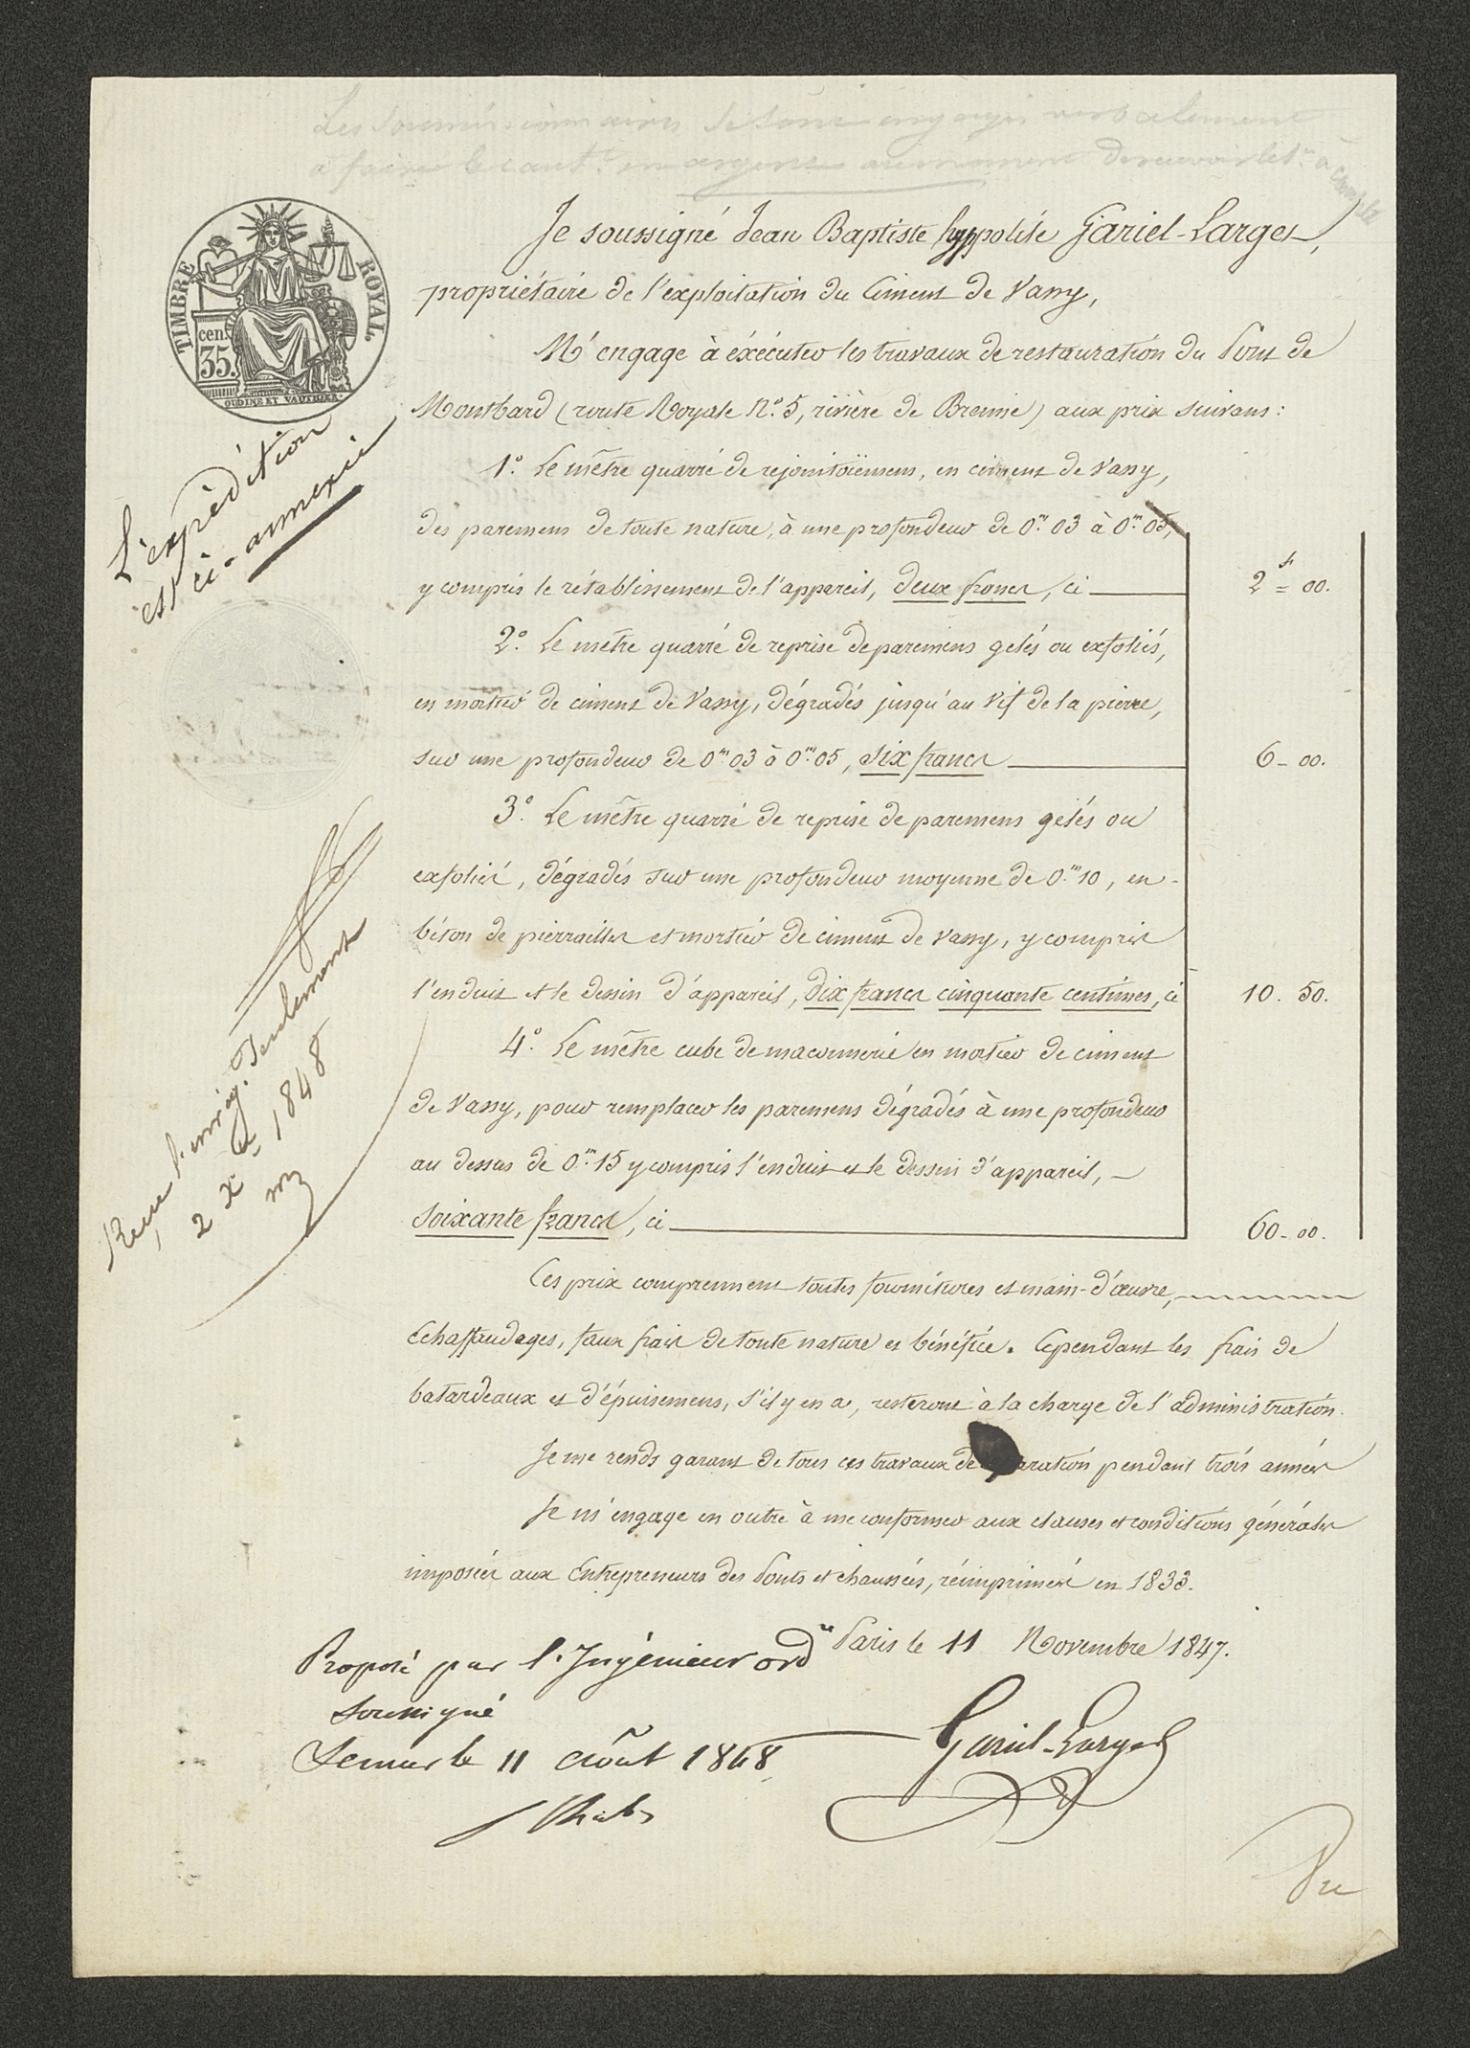 Les soumissionnaires se sont engagés verbalement
à faire le cautt. en argent au moment de recevoir le 1er à compte
TIMBRE ROYAL
cen.
35.
OUDINE ET VAUTHIER
Je soussigné Jean Baptiste hyppolite Gariel-Larges,
propriétaire de l'exploitation du Ciment de Vassy,
M'engage à éxécuter les travaux de restauration du Pont de
Montbard (route Royale N.o 5, rivière de Brenne) aux prix suivans :
L'expédition
est ci-annexée
1.o Le mètre quarré de rejointoiement, en ciment de Vassy,
des paremens de toute nature, à une profondeur de 0.m 03 à 0.m 05,
y compris le rétablissement de l'appareil, deux francs, ci 2 f = 00.
2.o Le mètre quarré de reprise de paremens gelés ou exfoliés,
en mortier de ciment de Vassy, dégradés jusqu'au vif de la pierre,
sur une profondeur de 0m 03 à 0.m 05, six francs 6 - 00.
3.o Le mètre quarré de reprise de paremens gelés ou
exfoliés, dégradés sur une profondeur moyenne de 0.m 10, en
béton de pierrailles et mortier de ciment de Vassy, y compris
l'enduit et le dessin d'appareil, dix francs cinquante centimes, ci 10. 50.
4.o Le mètre cube de maconnerie en mortier de ciment
de Vassy, pour remplacer les paremens dégradés à une profondeur
au dessus de 0.m 15 y compris l'enduit et le dessin d'appareil, -
soixante francs, ci 60 - 00.
seulement
2 Xbre 1848
Ces prix comprennent toutes fournitures et main-d'œuvre,
échaffaudages, faux frais de toute nature et bénéfice. Cependant les frais de
batardeaux et d'épuisemens, s'il y en a, resteront à la charge de l'administration.
Je me rends garant de tous ces travaux de aration pendant trois années
Je m'engage en outre à me conformer aux clauses et conditions générales
imposées aux Entrepreneurs des Ponts et chaussées, réimprimées en 1833.
Paris le 11 Novembre 1847.
Gariel-Larges
Proposé par l'Ingénieur ordre
soussigné
Semur le 11 Août 1848
Vu